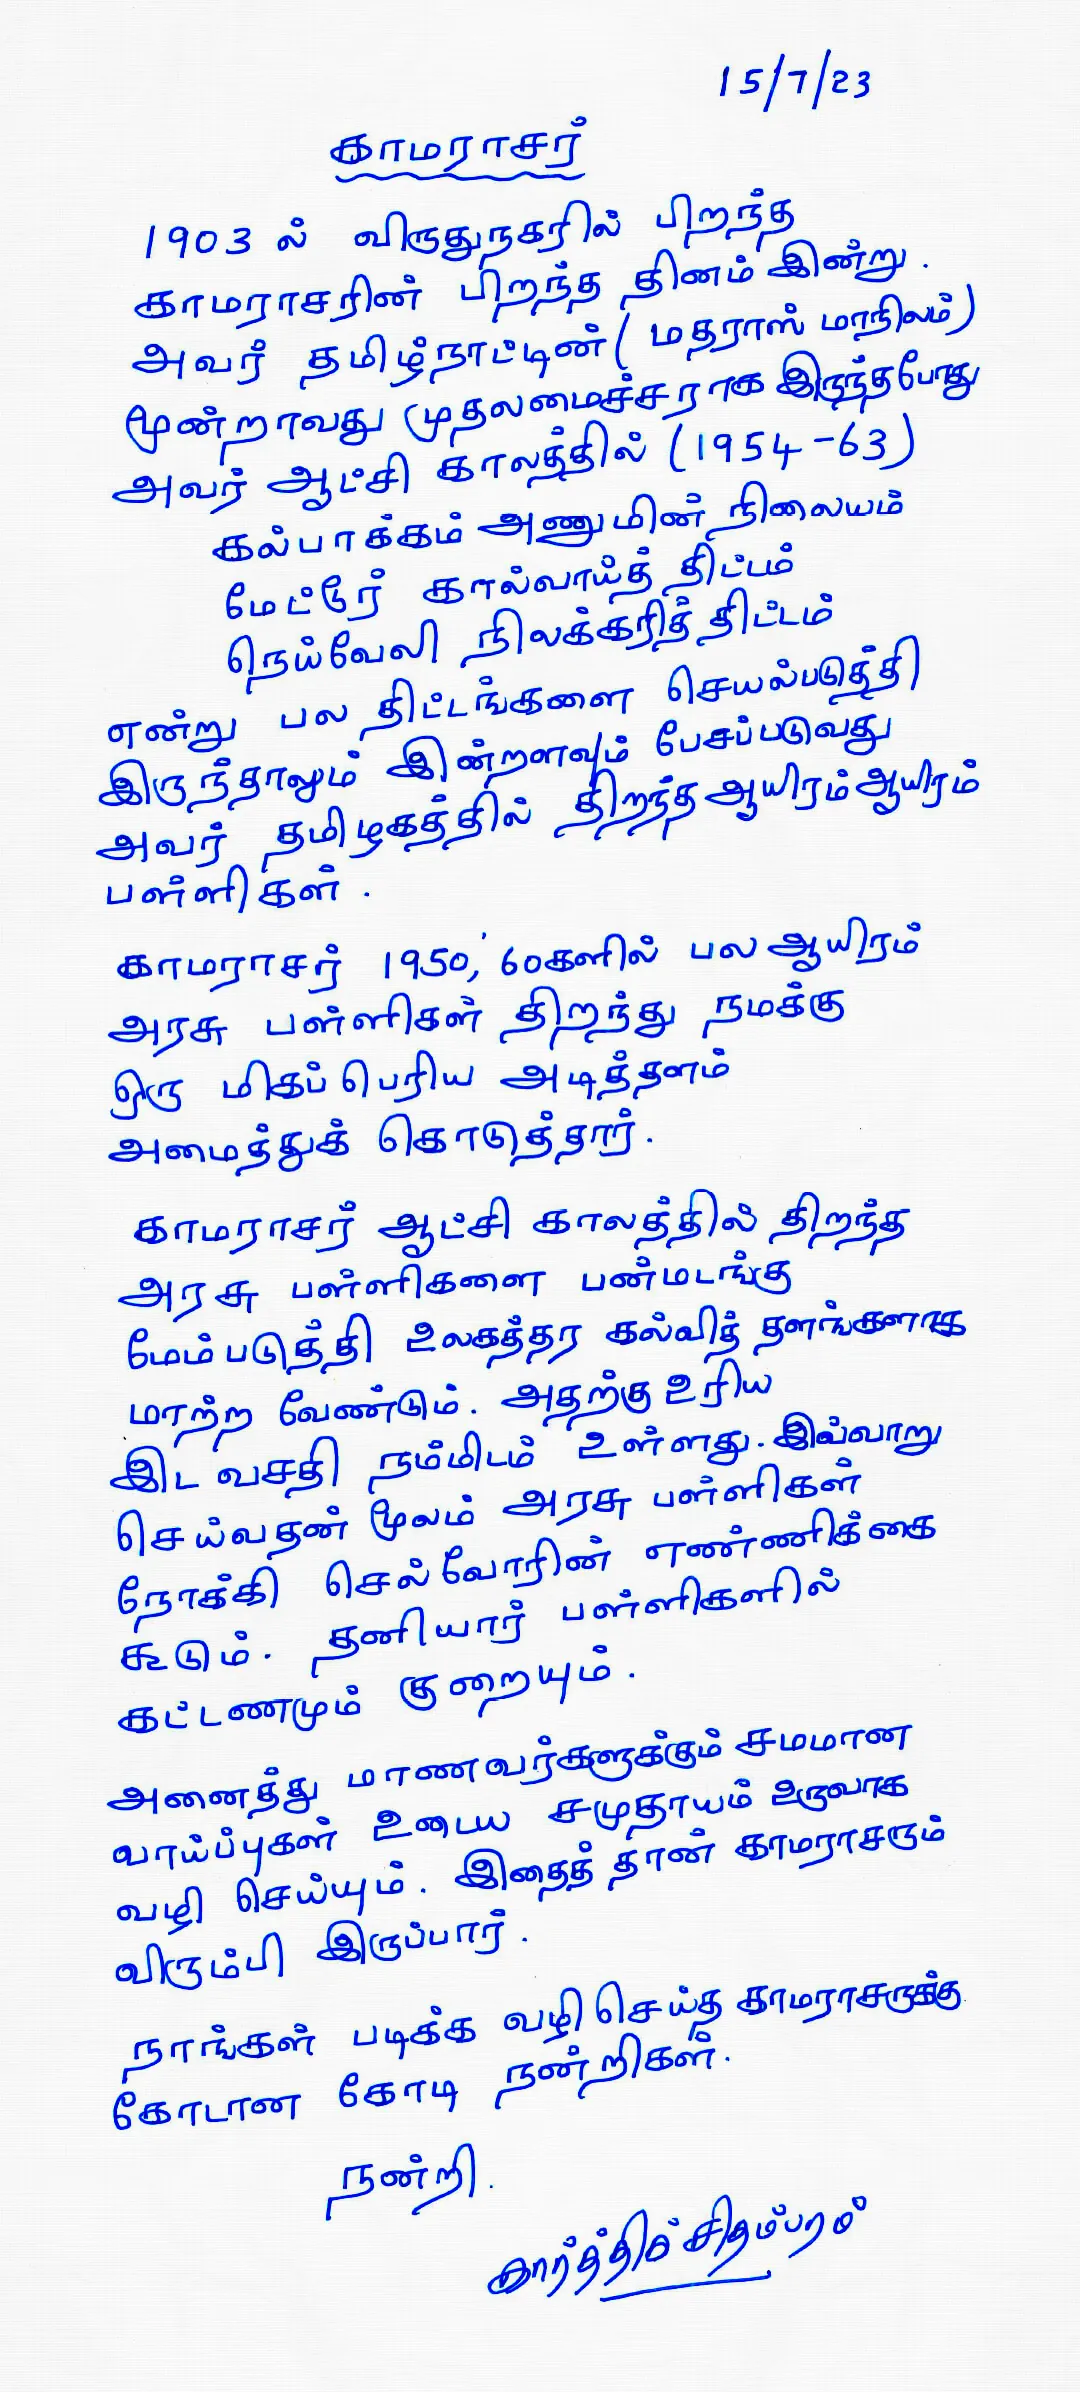 15/7/23
காமராசர்
1903 ல் விருதுநகரில் பிறந்த
காமராசரின் பிறந்த தினம் இன்று.
அவர் தமிழ்நாட்டின் (மதராஸ் மாநிலம்)
மூன்றாவது முதலமைச்சராக இருந்தபோது
அவர் ஆட்சி காலத்தில் (1954-63)
கல்பாக்கம் அணுமின் நிலையம்
மேட்டூர் கால்வாய்த் திட்டம்
நெய்வேலி நிலக்கரித் திட்டம்
என்று பல திட்டங்களை செயல்படுத்தி
இருந்தாலும் இன்றளவும் பேசப்படுவது
அவர் தமிழகத்தில் திறந்த ஆயிரம் ஆயிரம்
பள்ளிகள்.
காமராசர் 1950,'60களில் பல ஆயிரம்
அரசு பள்ளிகள் திறந்து நமக்கு
ஒரு மிகப் பெரிய அடித்தளம்
அமைத்துக் கொடுத்தார்.
காமராசர் ஆட்சி காலத்தில் திறந்த
அரசு பள்ளிகளை பன்மடங்கு
மேம்படுத்தி உலகத்தர கல்வித் தளங்களாக
மாற்ற வேண்டும். அதற்கு உரிய
இட வசதி நம்மிடம் உள்ளது. இவ்வாறு
செய்வதன் மூலம் அரசு பள்ளிகள்
நோக்கி செல்வோரின் எண்ணிக்கை
கூடும். தனியார் பள்ளிகளில்
கட்டணமும் குறையும்.
அனைத்து மாணவர்களுக்கும் சமமான
வாய்ப்புகள் உடைய சமுதாயம் உருவாக
வழி செய்யும். இதைத் தான் காமராசரும்
விரும்பி இருப்பார்.
நாங்கள் படிக்க வழி செய்த காமராசருக்கு
கோடான கோடி நன்றிகள்.
நன்றி.
கார்த்திக் சிதம்பரம்